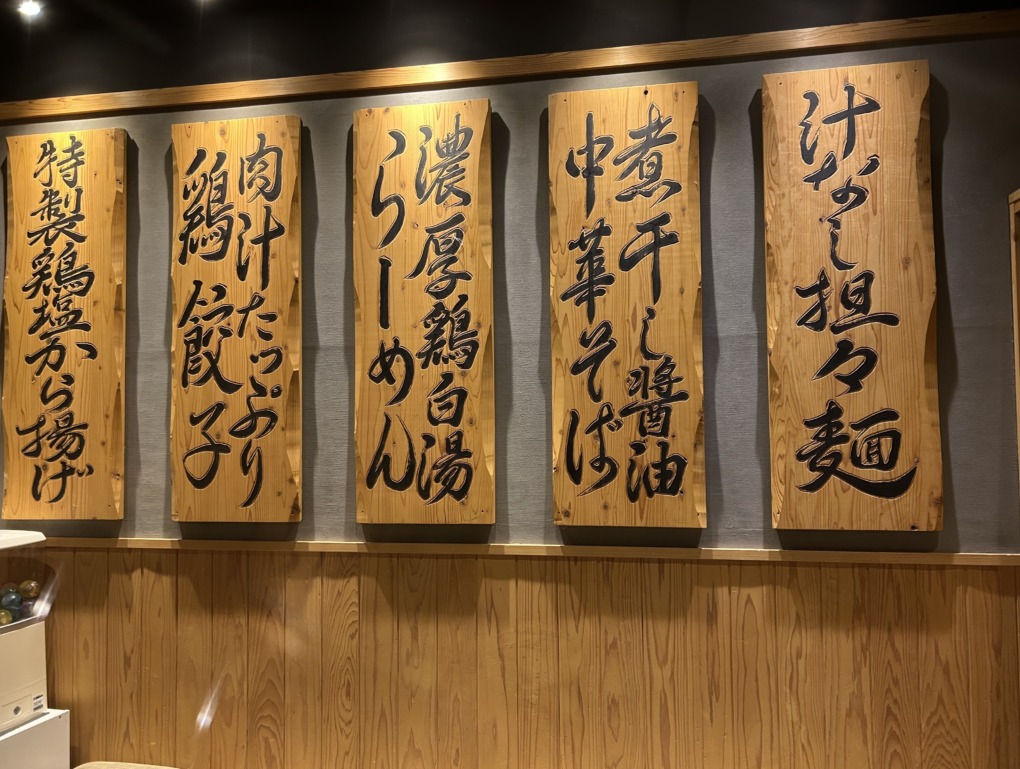 汁なし担々麺
煮干し醤油
中華そば
濃厚鶏白湯
らーめん
肉汁たっぷり
鶏餃子
特製鶏塩から揚げ